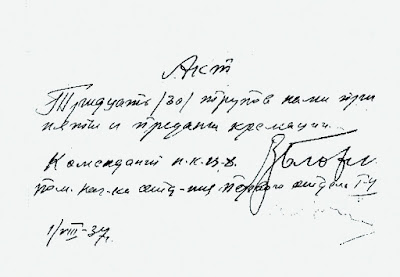 Акт
Тридцать /30/ трупов нами при
няты и преданы кремации.
Комендант Н.К.В.Д. Блохин
пом. нач-ка отд-ния первого отдела
1/VIII-37г.